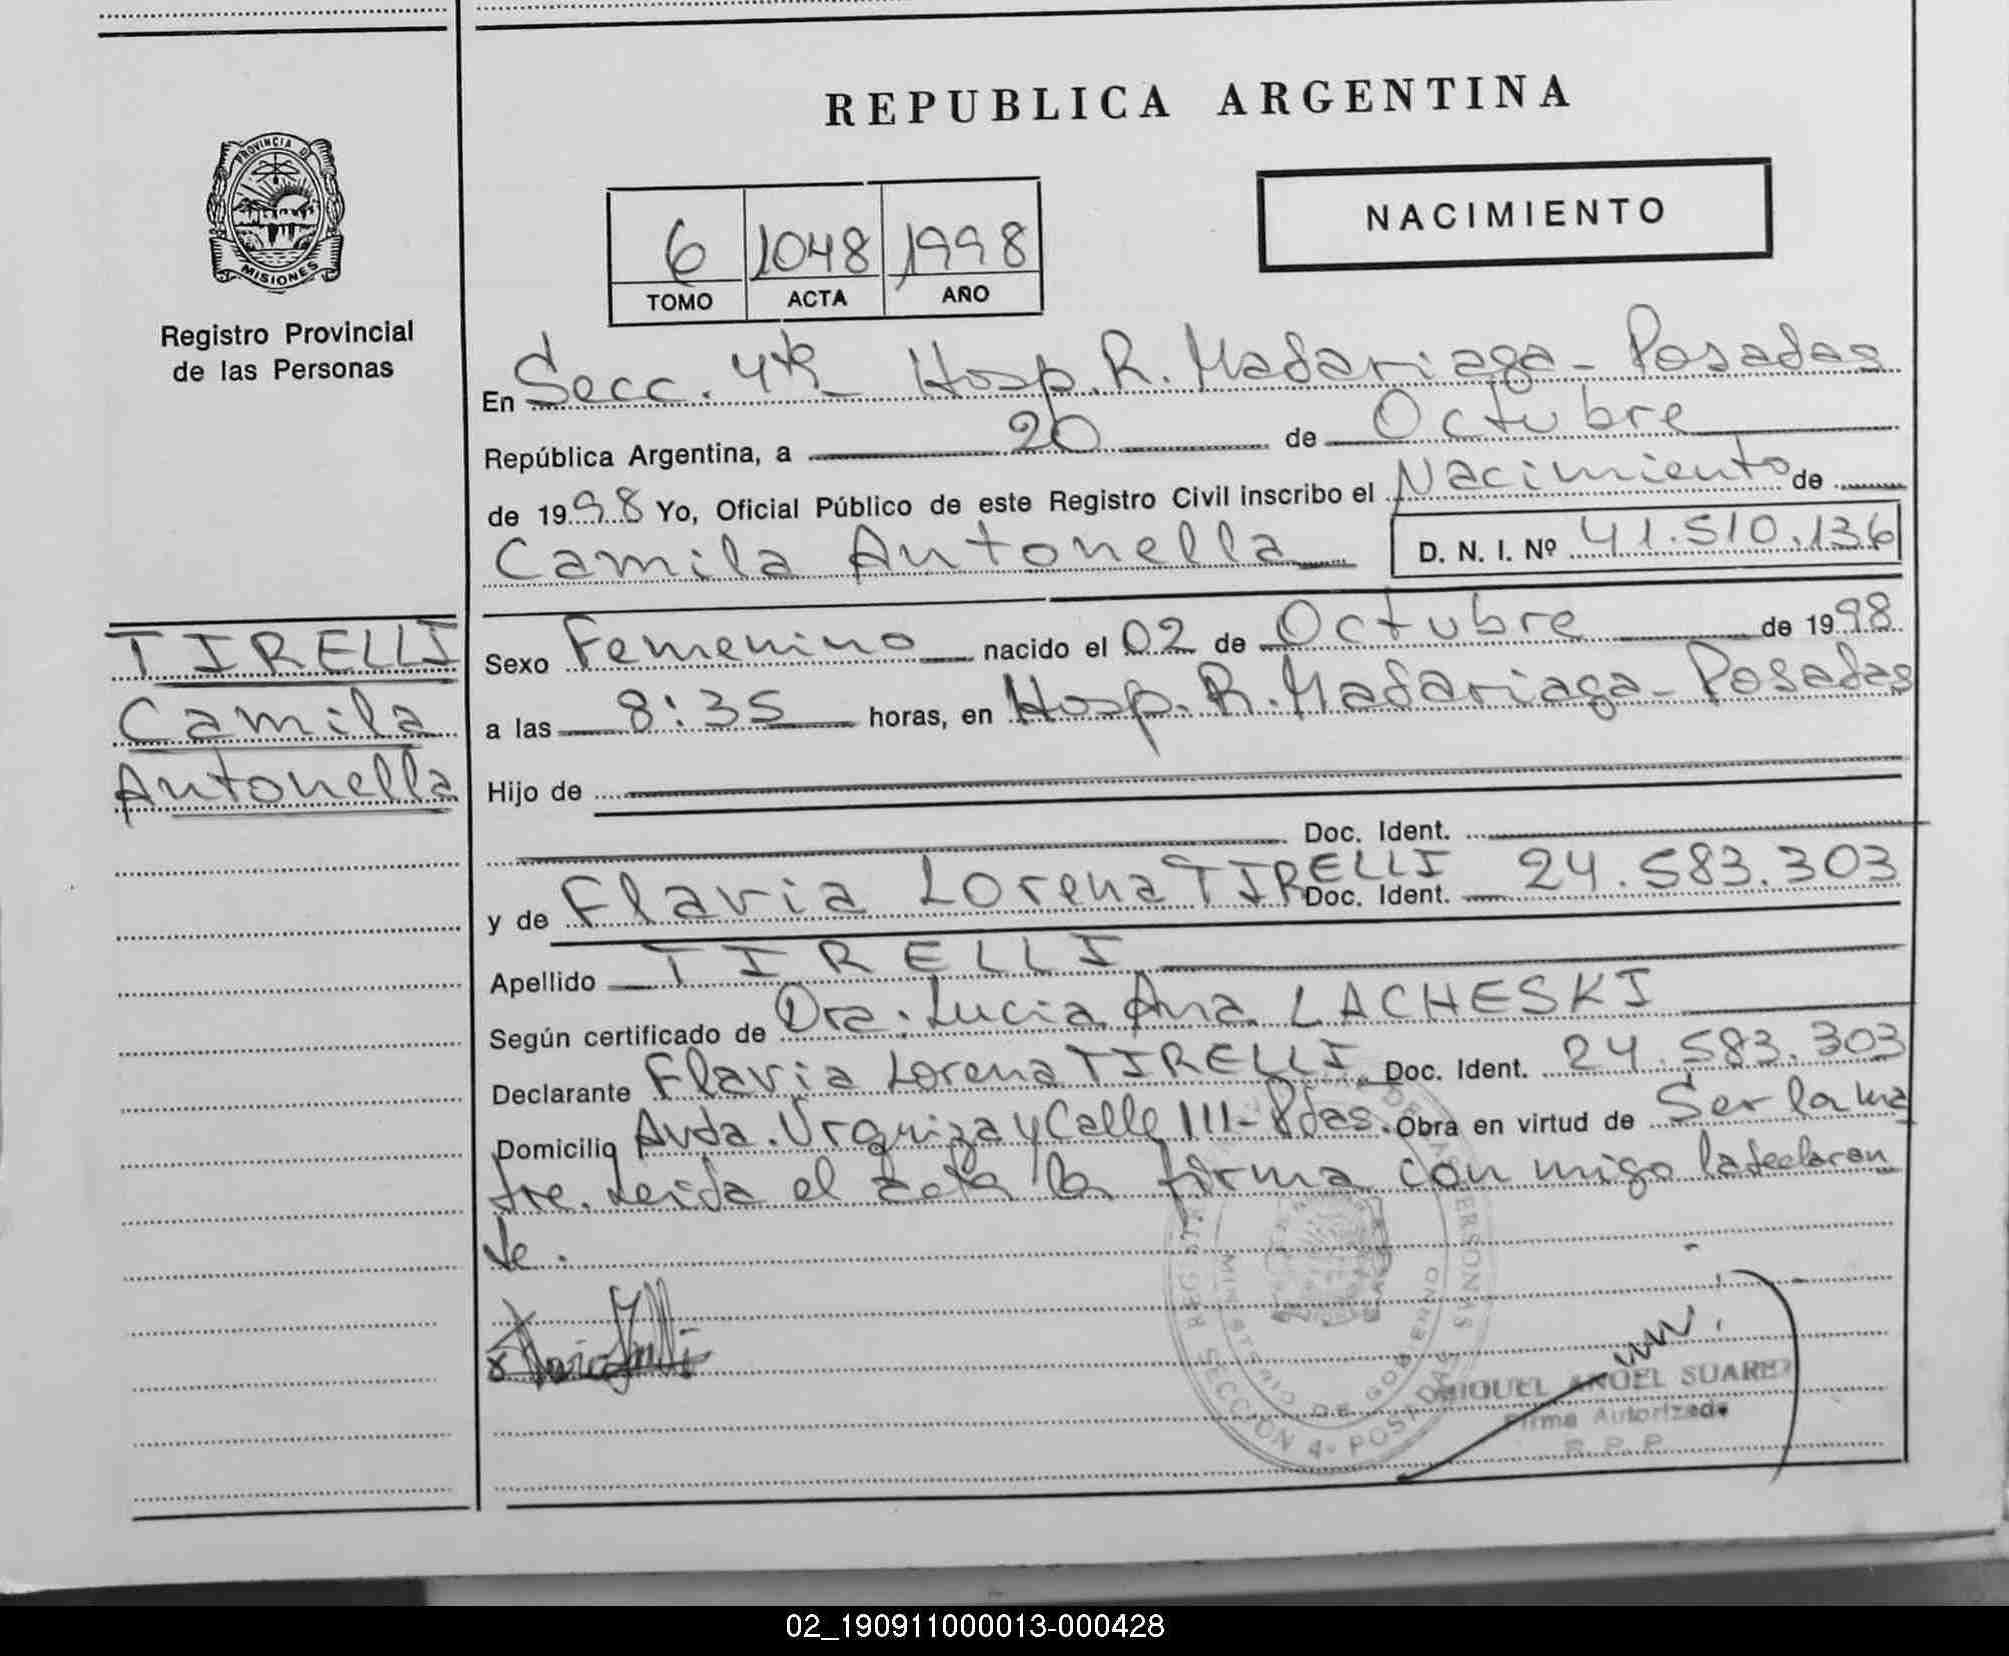 REPUBLICA ARGENTINA
PROVINCIA D
MISIONES
Registro Provincial
de las Personas
NACIMIENTO
6 1048 1998
TOMO ACTA AÑO
En Secc. 4ta Hosp. R. Madariaga - Posadas
República Argentina, a 20 de Octubre
de 1998 Yo, Oficial Público de este Registro Civil inscribo el Nacimiento de
Camila Antonella D. N. I. Nº 41.510.136
TIRELLI
Camila
Antonella
Sexo Femenino nacido el 02 de Octubre de 1998
a las 8:35 horas, en Hosp. R. Madariaga - Posadas
Hijo de
Doc. Ident.
y de Flavia Lorena TIRELLI Doc. Ident. 24.583.303
Apellido TIRELLI
Según certificado de Dra. Lucia Ana LACHESKI
Declarante Flavia Lorena TIRELLI Doc. Ident. 24.583.303
Domicilio Avda. Urquiza y Calle 111 - Pdas. Obra en virtud de Ser la ma
dre. Leida el acta la firma con migo la declaran
te.
SECCION 4ª POSADAS
MINISTERIO DE GOBIERNO
MIGUEL ANGEL SUAREZ
Firma Autorizada
R. P. P.
02_190911000013-000428